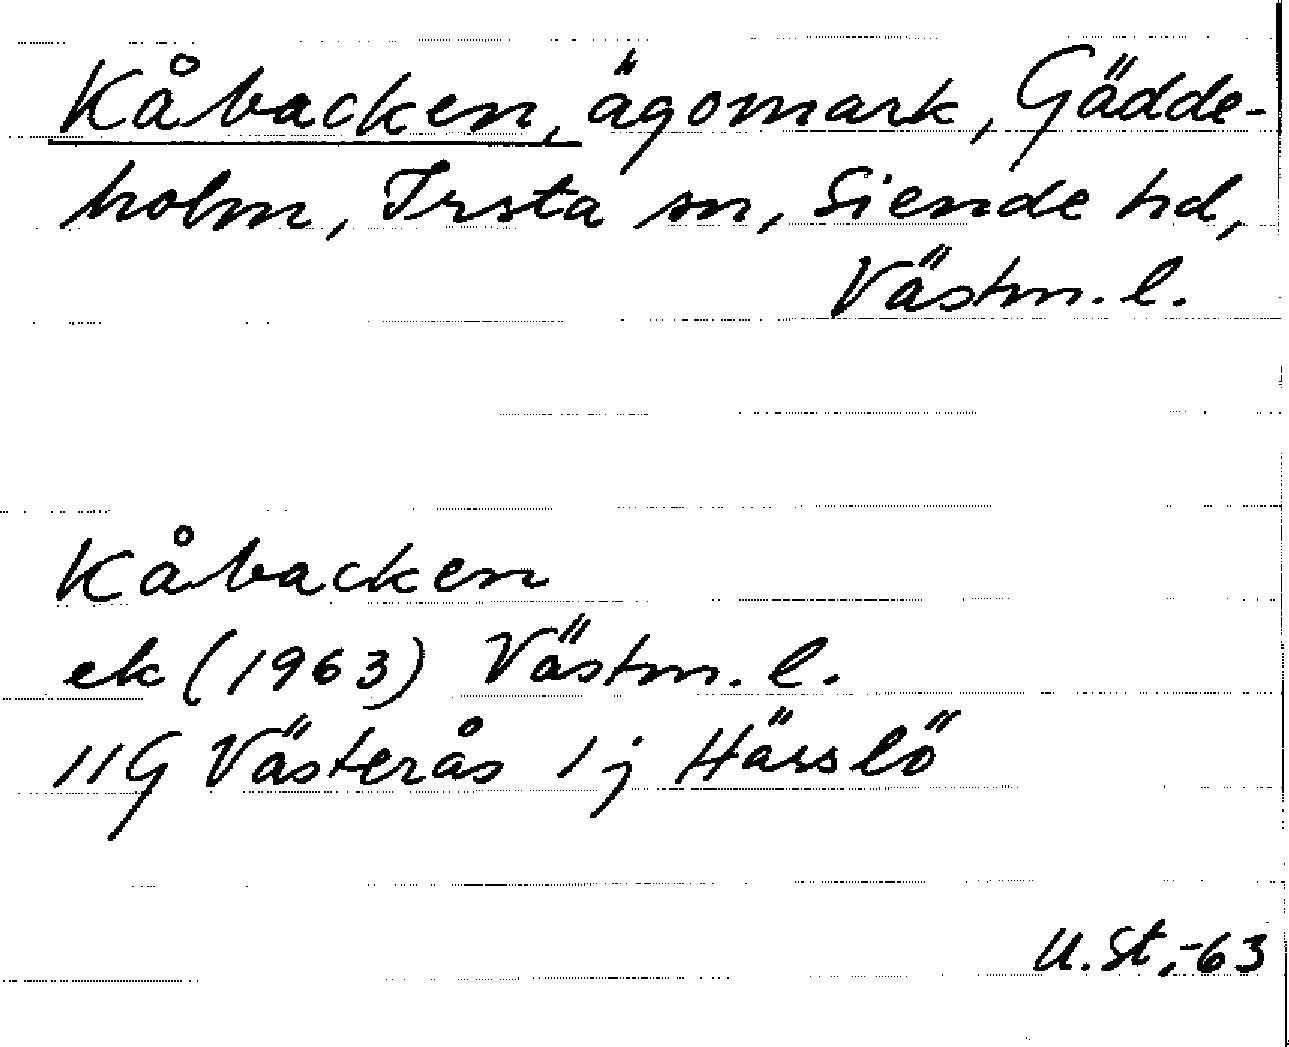 Kåbacken, ägomark, Gädde-
holm, Irsta sn, Siende hd,
Västm. l.
Kåbacken
ek (1963) Västm. l.
11G Västerås 1j Hässlö
U.St,-63